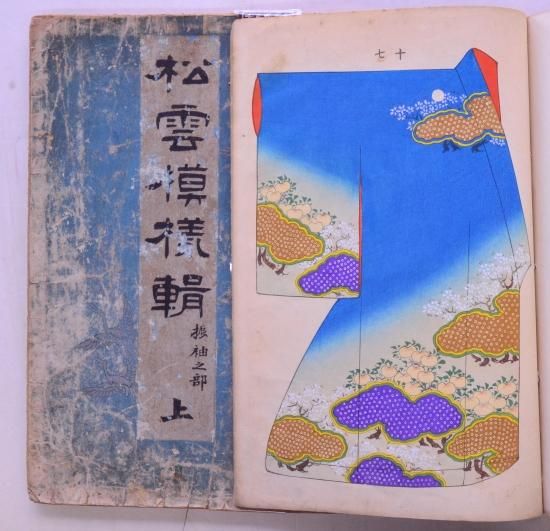 松雲模様輯
振袖之部
上
十七